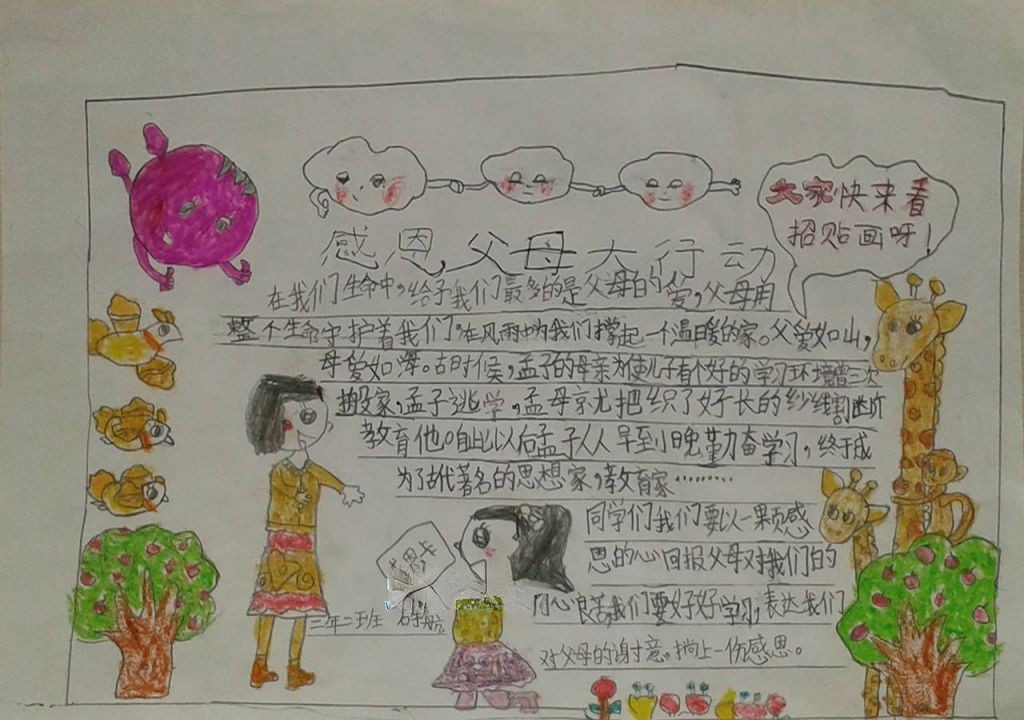 大家快来看
招贴画呀！
感恩父母大行动
在我们生命中，给予我们最多的是父母的爱，父母用
整个生命守护着我们，在风雨中为我们撑起一个温暖的家。父爱如山，
母爱如海。古时候，孟子的母亲为使儿子有个好的学习环境曾三次
搬家，孟子逃学，孟母就把织了好长的纱线割断
教育他。自此以后孟子人人早到晚勤奋学习，终于成
为了古代著名的思想家，教育家………
同学们我们要以一颗感
恩的心回报父母对我们的
感恩卡
心良苦我们要好好学习，表达我们
三年二班
对父母的谢意。捎上一份感恩。